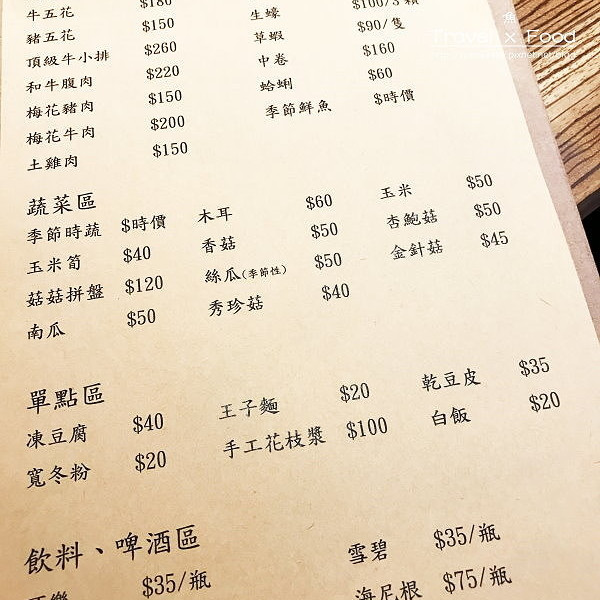 牛五花 $180
豬五花 $150
頂級牛小排 $260
和牛腹肉 $220
梅花豬肉 $150
梅花牛肉 $200
土雞肉 $150
生蠔 $100/3顆
草蝦 $90/隻
中卷 $160
蛤蜊 $60
季節鮮魚 $時價
蔬菜區
季節時蔬 $時價
玉米筍 $40
菇菇拼盤 $120
南瓜 $50
木耳 $60
香菇 $50
絲瓜(季節性) $50
秀珍菇 $40
玉米 $50
杏鮑菇 $50
金針菇 $45
單點區
凍豆腐 $40
寬冬粉 $20
王子麵 $20
手工花枝漿 $100
乾豆皮 $35
白飯 $20
飲料、啤酒區
$35/瓶
雪碧 $35/瓶
海尼根 $75/瓶
魚
Travel x Food